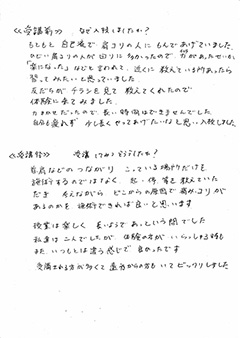 《受講前》 なぜ入校しましたか?
もともと 自己流で 肩コリの人に もんであげていました。
ひどい肩コリの人が 回りに 多かったので、
楽になったなどと言われて、近くに 教えている所があったら
習ってみたいと思っていました。
友だちが チラシを見て 教えてくれたので
体験に来てみました。
力まかせだったので 長い時間はできませんでした。
自分も疲れず 少し長くやってあげたいなと思い、入校しました
《受講後》 受講してみてどうでしたか?
筋肉などのつながり こっている場所だけを
施術するのではなく、 等も教えていた
だき どこからの原因で 肩がコリが
あるのかを 施術できれば良いと思います
授業は楽しく 長いようであっという間でした
私達は 二人でしたが 体験の方が いらっしゃる時も
また、いつもとは違う感じで 良かったです
受講される方が多くて 遠方からの方もいて ビックリしました